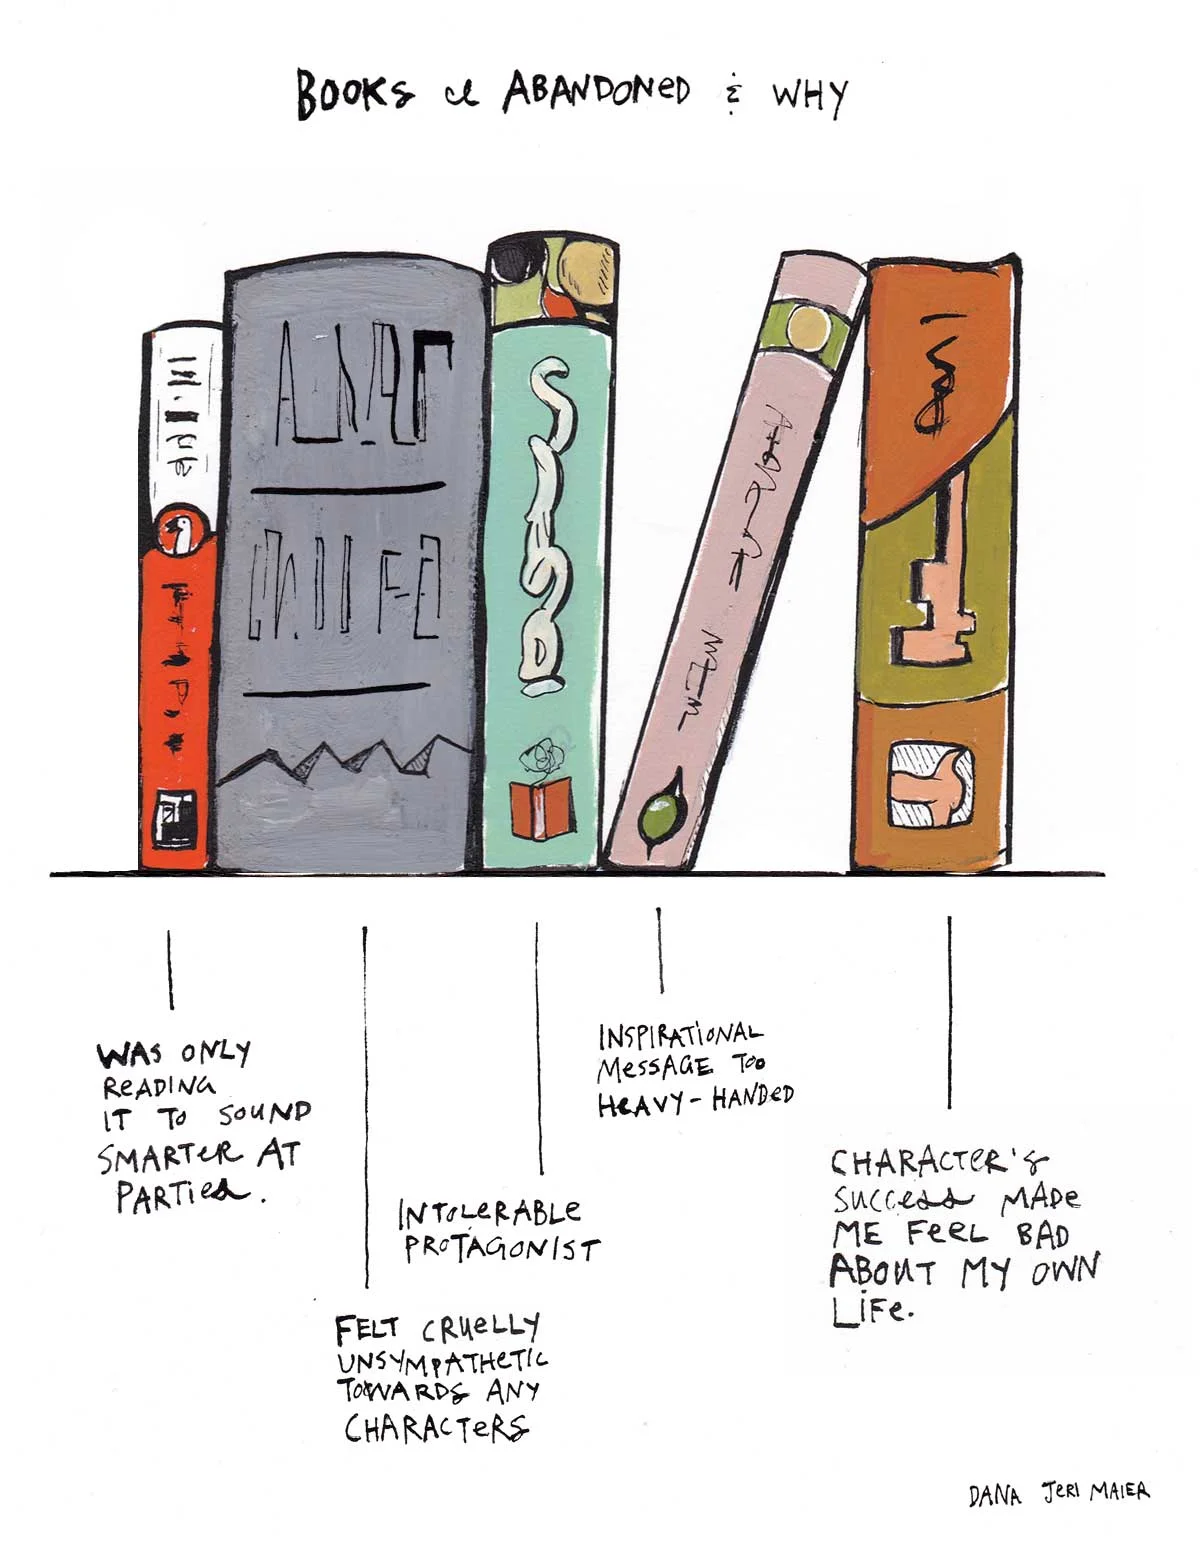 BOOKS I ABANDONED & WHY
WAS ONLY
READING
IT TO SOUND
SMARTER AT
PARTIES.
FELT CRUELLY
UNSYMPATHETIC
TOWARDS ANY
CHARACTERS
INTOLERABLE
PROTAGONIST
INSPIRATIONAL
MESSAGE TOO
HEAVY-HANDED
CHARACTER'S
SUCCESS MADE
ME FEEL BAD
ABOUT MY OWN
LIFE.
DANA JERI MAIER